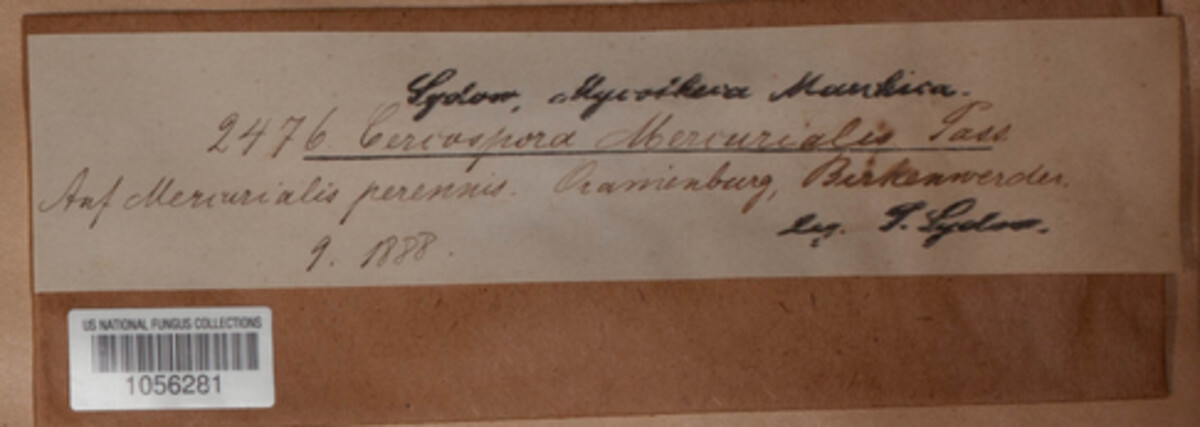 Sydow, Mycotheca Marchica.
2476. Cercospora Mercurialis Pass.
Auf Mercurialis perennis. Oranienburg, Birkenwerder.
leg. P. Sydow.
9. 1888.
US NATIONAL FUNGUS COLLECTIONS
1056281